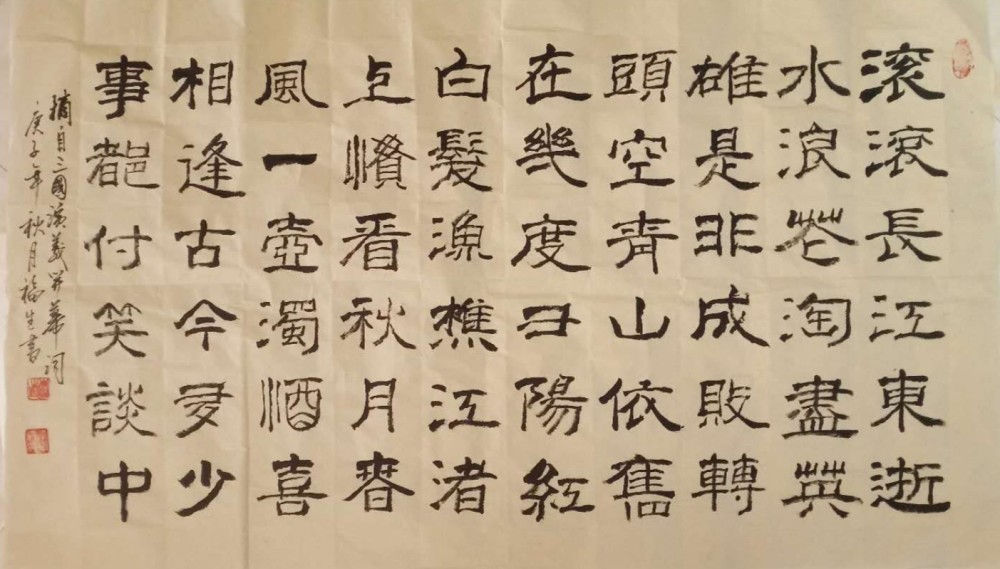 滚滚長江東逝
水浪花淘盡英
雄是非成敗轉
頭空青山依舊
在幾度夕陽紅
白髮漁樵江渚
上慣看秋月春
風一壺濁酒喜
相逢古今多少
事都付笑談中
摘自三國演義開篇词
庚子年秋月福生書